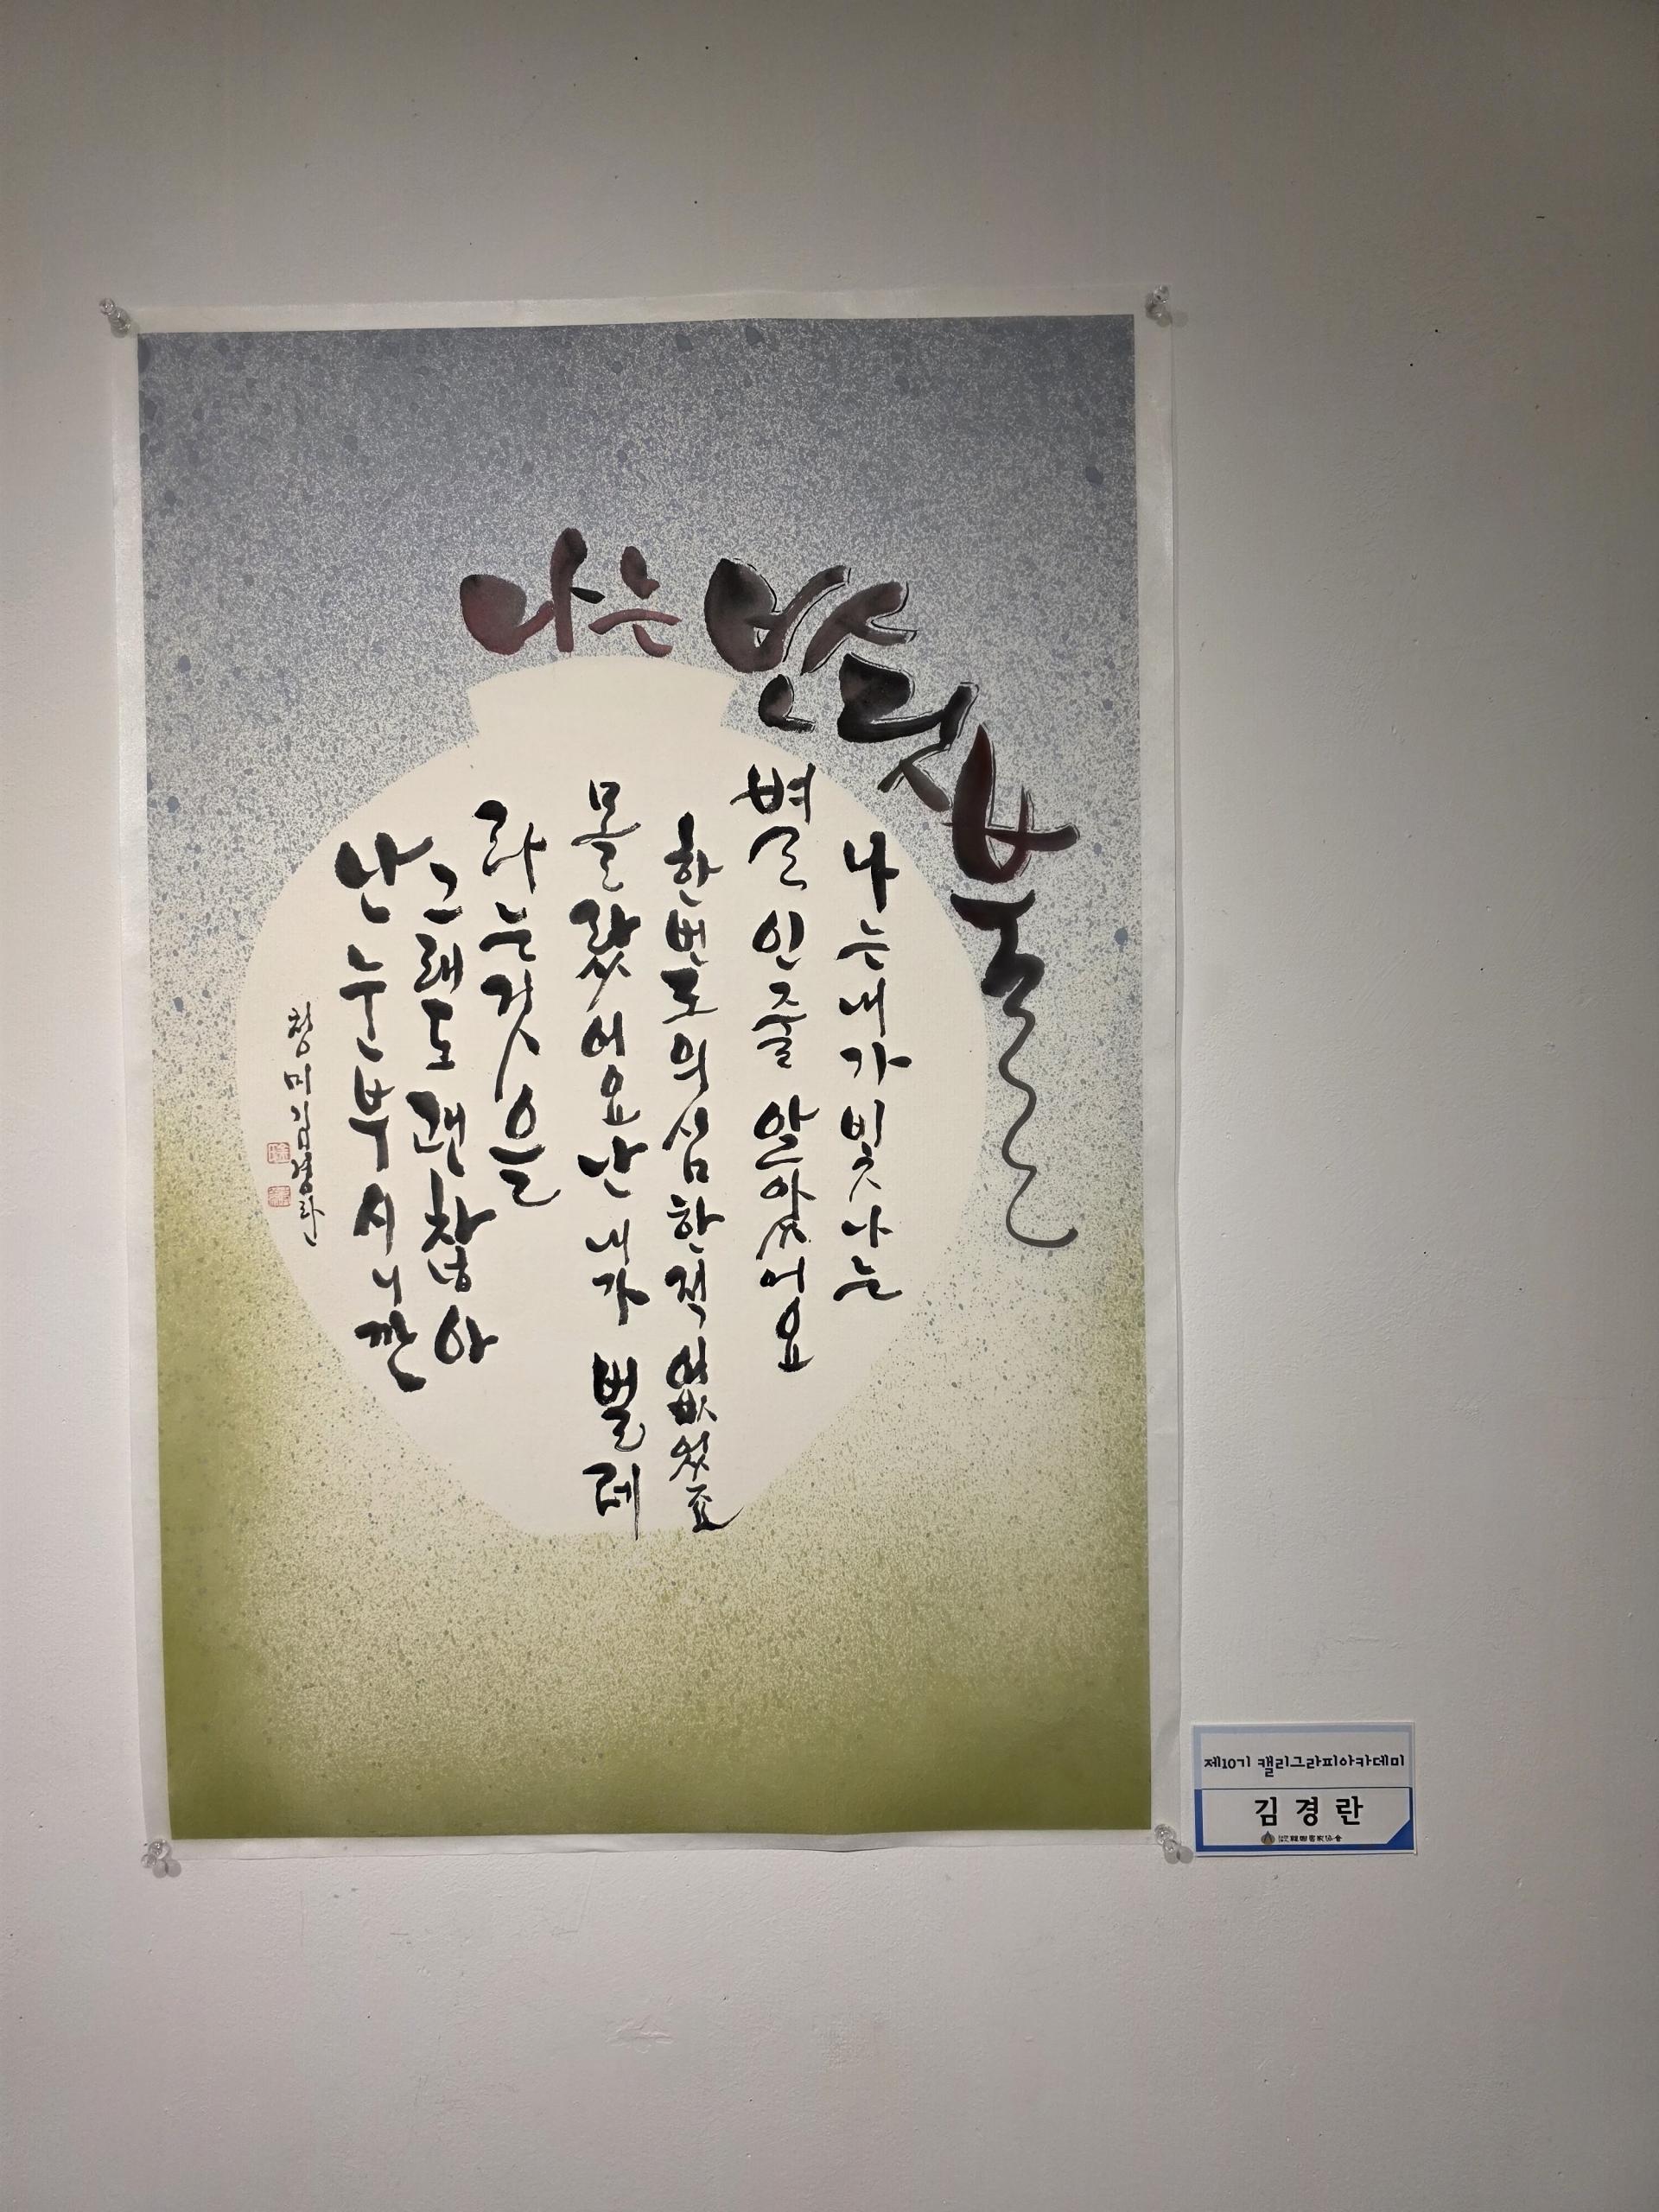 나는 반딧불
나는내가 빛나는
별인줄 알았어요
한번도의심한적 없었죠
몰랐어요난 내가 벌레
라는것을
그래도 괜찮아
난 눈부시니깐
청미 김경란
제10기 캘리그라피아카데미
김경란